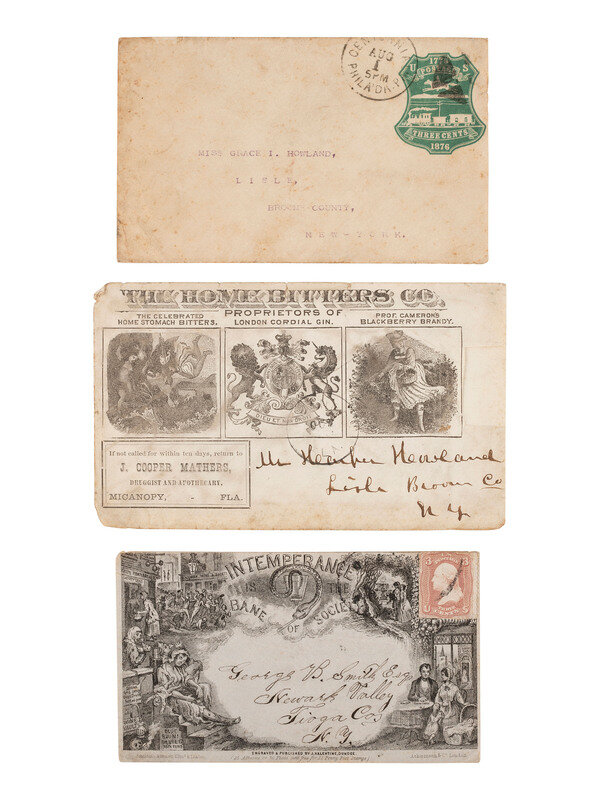 CENTENNIAL
AUG
1
5PM
PHILA'DA. P
U S
17
POSTAGE
THREE CENTS
1876
MISS GRACE I. HOWLAND,
LISLE,
BROOME COUNTY,
NEW-YORK.
THE HOME BITTERS CO.
PROPRIETORS OF
THE CELEBRATED
HOME STOMACH BITTERS.
LONDON CORDIAL GIN.
PROF. CAMERONS
BLACKBERRY BRANDY.
If not called for within ten days, return to
J. COOPER MATHERS,
DRUGGIST AND APOTHECARY.
MICANOPY, - FLA.
Mr Harper Howland
Lisle Broom Co
N Y
INTEMPERANCE
IS THE
BANE OF SOCIETY
3 3
U S
George B. Smith Esq
Newark Valley
Tioga Co
N.Y.
ENGRAVED & PUBLISHED BY J. VALENTINE, DUNDEE
Ackermann & Co. London.